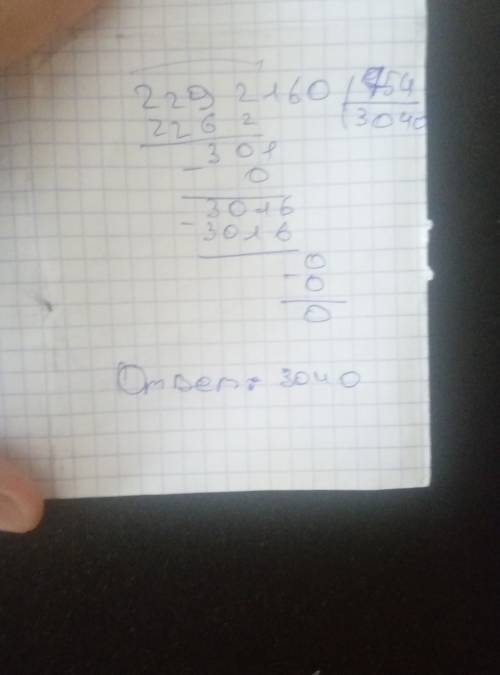 229 2160 754
226 2 3040
- 301
0
3016
- 3016
0
- 0
0
Ответ: 3040